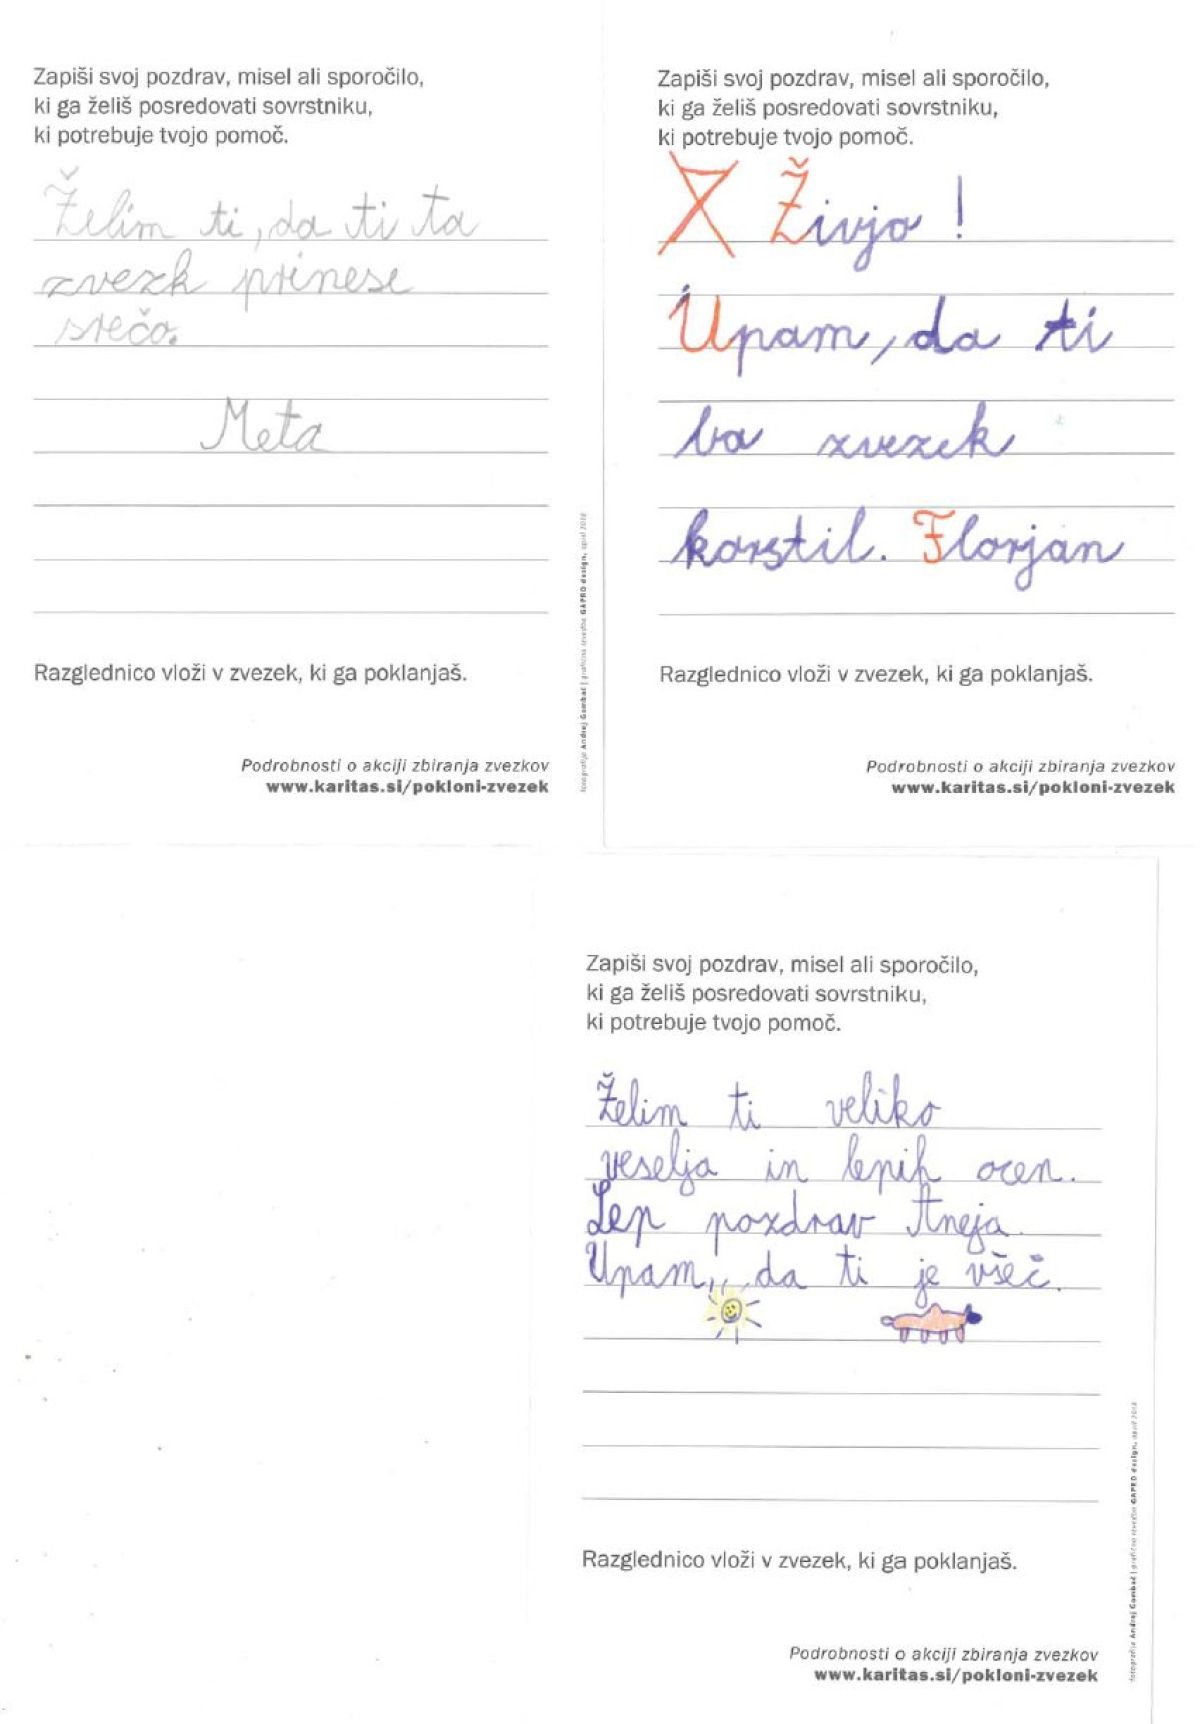 Zapiši svoj pozdrav, misel ali sporočilo,
ki ga želiš posredovati sovrstniku,
ki potrebuje tvojo pomoč.
Želim ti, da ti ta
zvezk prinese
srečo.
Meta
Razglednico vloži v zvezek, ki ga poklanjaš.
Podrobnosti o akciji zbiranja zvezkov
www.karitas.si/pokloni-zvezek
fotografija Andrej Gombač | grafična izvedba GAPRO design, april 2012
Zapiši svoj pozdrav, misel ali sporočilo,
ki ga želiš posredovati sovrstniku,
ki potrebuje tvojo pomoč.
Živjo!
Upam, da ti
bo zvezek
korstil. Florjan
Razglednico vloži v zvezek, ki ga poklanjaš.
Podrobnosti o akciji zbiranja zvezkov
www.karitas.si/pokloni-zvezek
Zapiši svoj pozdrav, misel ali sporočilo,
ki ga želiš posredovati sovrstniku,
ki potrebuje tvojo pomoč.
Želim ti veliko
veselja in lepih ocen.
Lep pozdrav Aneja
Upam, da ti je všeč.
Razglednico vloži v zvezek, ki ga poklanjaš.
Podrobnosti o akciji zbiranja zvezkov
www.karitas.si/pokloni-zvezek
fotografija Andrej Gombač | grafična izvedba GAPRO design, april 2012